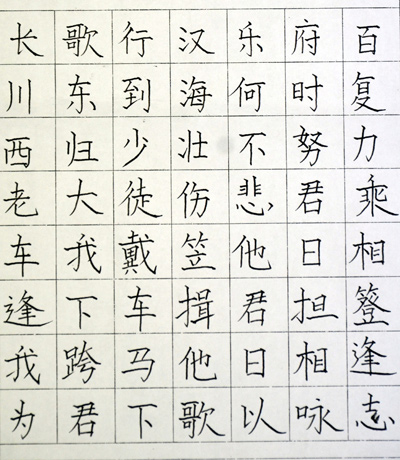 长歌行汉乐府百
川东到海何时复
西归少壮不努力
老大徒伤悲君乘
车我戴笠他日相
逢下车揖君担簦
我跨马他日相逢
为君下歌以咏志